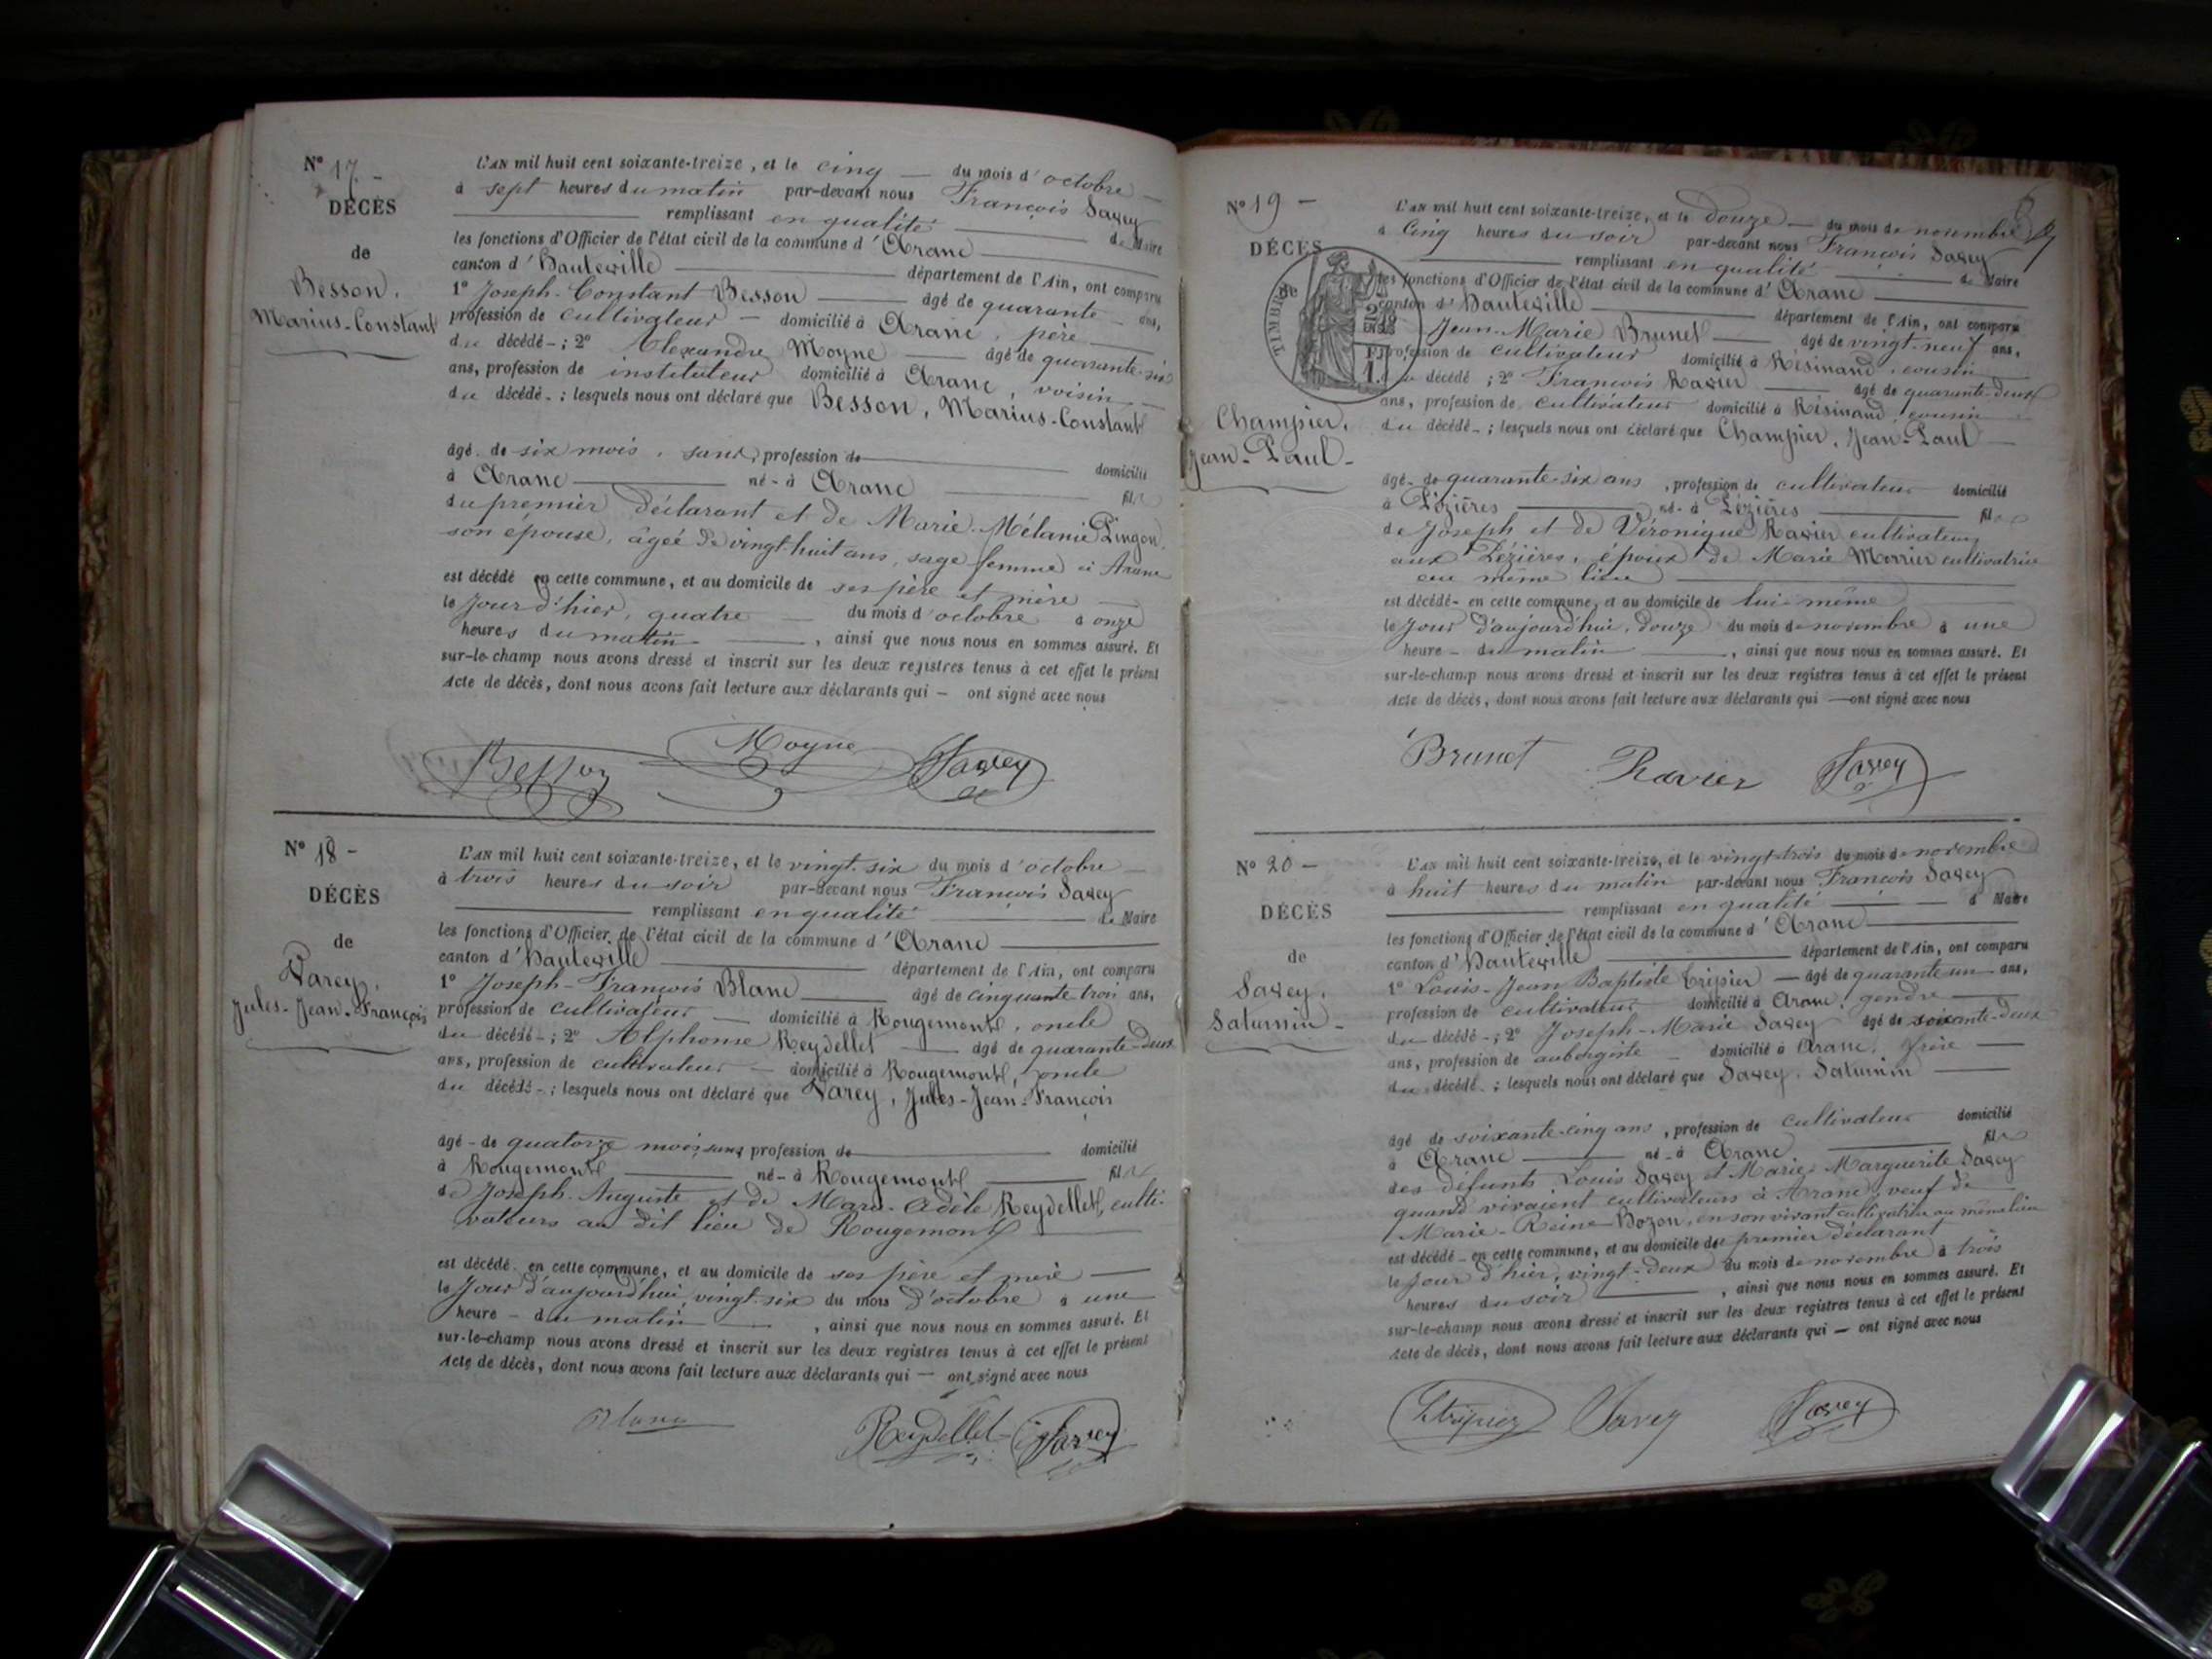 N° 17 -
DÉCÈS
de
Besson,
Marius-Constant
L'AN mil huit cent soixante-treize, et le cinq du mois d'octobre
à sept heures du matin par-devant nous François Savey
remplissant en qualité de Maire
les fonctions d'Officier de l'état civil de la commune d'Aranc
canton d'Hauteville département de l'Ain, ont comparu
1° Joseph-Constant Besson âgé de quarante ans,
profession de cultivateur domicilié à Aranc, père
du décédé; 2° Alexandre Moyne âgé de quarante-six
ans, profession de instituteur domicilié à Aranc, voisin
du décédé; lesquels nous ont déclaré que Besson, Marius-Constant
âgé de six mois, sans profession de domicilié
à Aranc né à Aranc fils
du premier déclarant et de Marie-Mélanie Pingon,
son épouse, âgée de vingt-huit ans, sage femme à Aranc
est décédé en cette commune, et au domicile de ses père et mère
le jour d'hier, quatre du mois d'octobre à onze
heures du matin, ainsi que nous nous en sommes assuré. Et
sur-le-champ nous avons dressé et inscrit sur les deux registres tenus à cet effet le présent
Acte de décès, dont nous avons fait lecture aux déclarants qui — ont signé avec nous
Besson Moyne Savey
N° 18 -
DÉCÈS
de
Varey,
Jules-Jean-François
L'AN mil huit cent soixante-treize, et le vingt-six du mois d'octobre
à trois heures du soir par-devant nous François Savey
remplissant en qualité de Maire
les fonctions d'Officier de l'état civil de la commune d'Aranc
canton d'Hauteville département de l'Ain, ont comparu
1° Joseph-François Blanc âgé de cinquante trois ans,
profession de cultivateur domicilié à Rougemont, oncle
du décédé; 2° Alphonse Reydellet âgé de quarante-deux
ans, profession de cultivateur domicilié à Rougemont, oncle
du décédé; lesquels nous ont déclaré que Varey, Jules-Jean-François
âgé de quatorze mois, sans profession de domicilié
à Rougemont né à Rougemont fils
de Joseph-Auguste et de Marie-Adèle Reydellet, culti-
vateurs au dit lieu de Rougemont
est décédé en cette commune, et au domicile de ses père et mère
le jour d'aujourd'hui, vingt-six du mois d'octobre à une
heure du matin, ainsi que nous nous en sommes assuré. Et
sur-le-champ nous avons dressé et inscrit sur les deux registres tenus à cet effet le présent
Acte de décès, dont nous avons fait lecture aux déclarants qui — ont signé avec nous
Blanc Reydellet Savey
N° 19 -
DÉCÈS
de
TIMBRE
Champier,
Jean-Paul-
L'AN mil huit cent soixante-treize, et le douze du mois de novembre
à cinq heures du soir par-devant nous François Savey
remplissant en qualité de Maire
les fonctions d'Officier de l'état civil de la commune d'Aranc
canton d'Hauteville département de l'Ain, ont comparu
Jean-Marie Brunet âgé de vingt-neuf ans,
profession de cultivateur domicilié à Résinand, cousin
du décédé; 2° François Ravier âgé de quarante-deux
ans, profession de cultivateur domicilié à Résinand, cousin
du décédé; lesquels nous ont déclaré que Champier, Jean-Paul
âgé de quarante-six ans, profession de cultivateur domicilié
à Pézières né à Pézières fils
de Joseph et de Véronique Ravier cultivateurs
aux Pézières, époux de Marie Monier cultivatrice
au même lieu
est décédé en cette commune, et au domicile de lui-même
le jour d'aujourd'hui, douze du mois de novembre à une
heure du matin, ainsi que nous nous en sommes assuré. Et
sur-le-champ nous avons dressé et inscrit sur les deux registres tenus à cet effet le présent
Acte de décès, dont nous avons fait lecture aux déclarants qui — ont signé avec nous
Brunet Ravier Savey
N° 20 -
DÉCÈS
de
Savey,
Saturnin-
L'AN mil huit cent soixante-treize, et le vingt-trois du mois de novembre
à huit heures du matin par-devant nous François Savey
remplissant en qualité d Maire
les fonctions d'Officier de l'état civil de la commune d'Aranc
canton d'Hauteville département de l'Ain, ont comparu
1° Louis-Jean Baptiste Tripier âgé de quarante un ans,
profession de cultivateur domicilié à Aranc, gendre
du décédé; 2° Joseph-Marie Savey âgé de soixante-deux
ans, profession de aubergiste domicilié à Aranc, frère
du décédé; lesquels nous ont déclaré que Savey, Saturnin
âgé de soixante-cinq ans, profession de cultivateur domicilié
à Aranc né à Aranc fils
des défunts Louis Savey et Marie-Marguerite Savey
quand vivaient cultivateurs à Aranc, veuf de
Marie-Reine Bozon, en son vivant cultivatrice au même lieu
est décédé en cette commune, et au domicile du premier déclarant
le jour d'hier, vingt-deux du mois de novembre à trois
heures du soir, ainsi que nous nous en sommes assuré. Et
sur-le-champ nous avons dressé et inscrit sur les deux registres tenus à cet effet le présent
Acte de décès, dont nous avons fait lecture aux déclarants qui — ont signé avec nous
Tripier Savey Savey